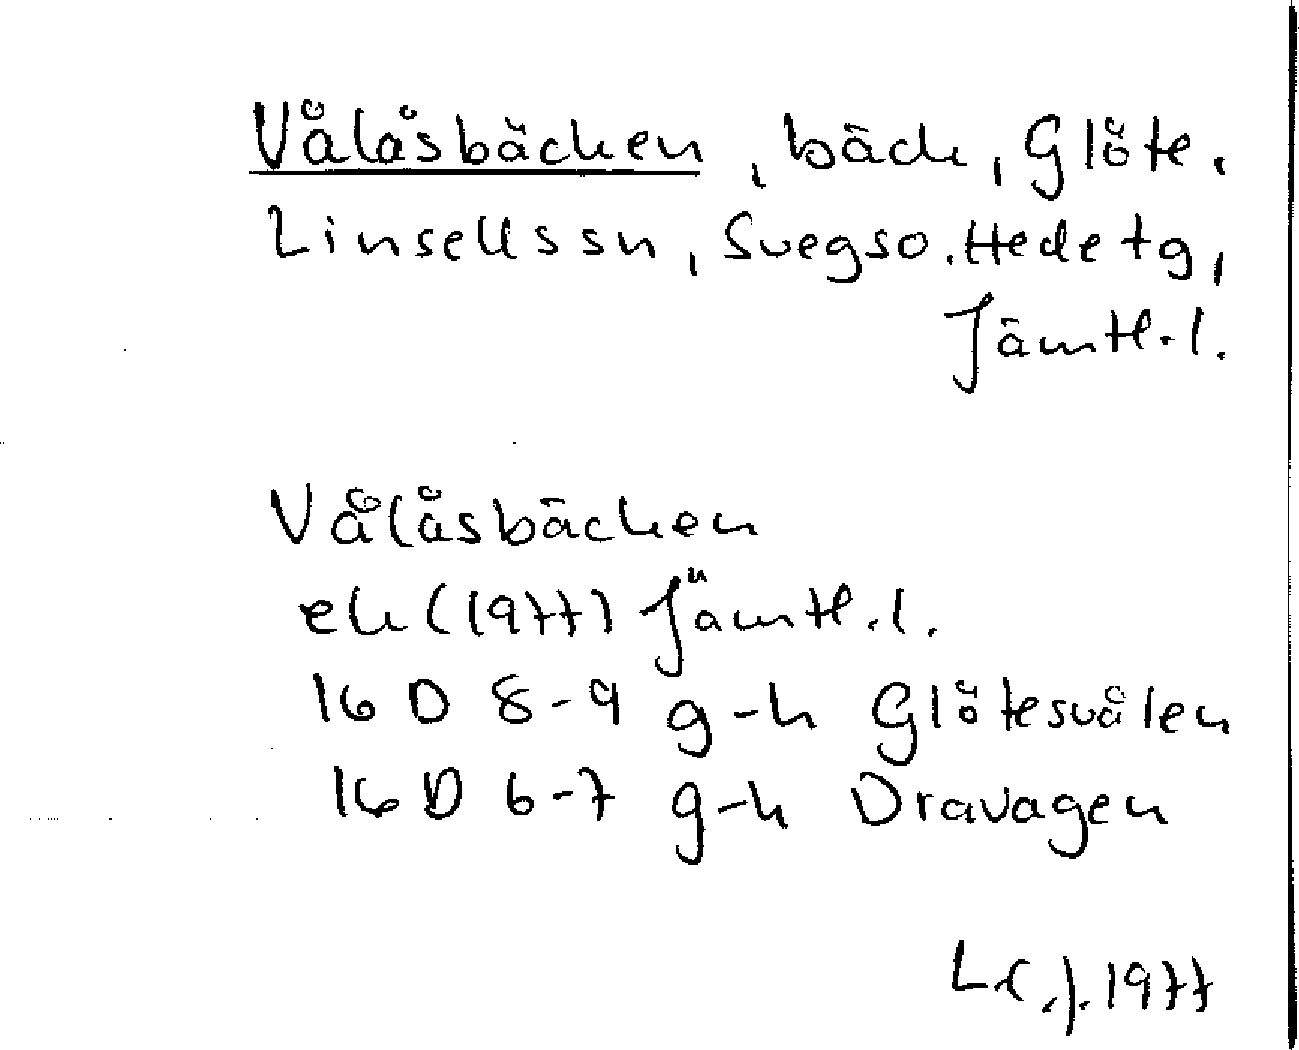 Vålåsbäcken, bäck, Glöte,
Linsells sn, Svegs o. Hede tg,
Jämtl. l.
Vålåsbäcken
ek (1977) Jämtl. l.
16 D 8-9 g-h Glötesvålen
16 D 6-7 g-h Dravagen
1977